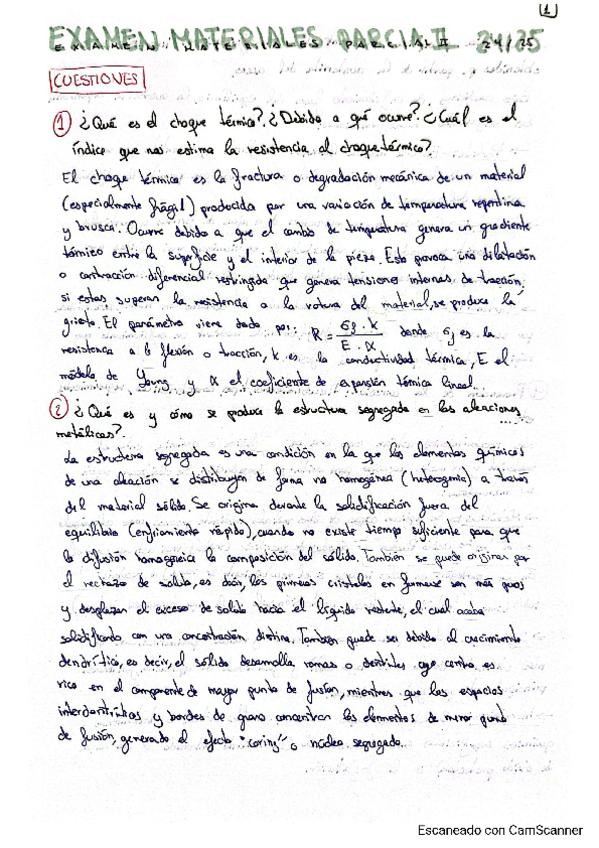 1
EXAMEN MATERIALES PARCIAL II 24/25
CUESTIONES
① ¿Qué es el choque térmico? ¿Debido a qué ocurre? ¿Cuál es el
índice que nos estima la resistencia al choque térmico?
El choque térmico es la fractura o degradación mecánica de un material
(especialmente frágil) producida por una variación de temperatura repentina
y brusca. Ocurre debido a que el cambio de temperatura genera un gradiente
térmico entre la superficie y el interior de la pieza. Esto provoca una dilatación
o contracción diferencial restringida que genera tensiones internas de tracción,
si estas superan la resistencia a la rotura del material, se produce la
grieta. El parámetro viene dado por: R = σf · k / E · α donde σf es la
resistencia a la flexión o tracción, k es la conductividad térmica, E el
módulo de Young y α el coeficiente de expansión térmica lineal.
② ¿Qué es y cómo se produce la estructura segregada en las aleaciones
metálicas?
La estructura segregada es una condición en la que los elementos químicos
de una aleación se distribuyen de forma no homogénea (heterogenia) a través
del material sólido. Se origina durante la solidificación fuera del
equilibrio (enfriamiento rápido), cuando no existe tiempo suficiente para que
la difusión homogenice la composición del sólido. También se puede originar por
el rechazo de soluto, es decir, los primeros cristales en formarse son más puros
y desplazan el exceso de soluto hacia el líquido restante, el cual acaba
solidificando con una concentración distinta. También puede ser debido al crecimiento
dendrítico, es decir, el sólido desarrolla ramas o dendritas cuyo centro es
rico en el componente de mayor punto de fusión, mientras que los espacios
interdendríticos y bordes de grano concentran los elementos de menor punto
de fusión, generando el efecto "coring" o núcleo segregado.
Escaneado con CamScanner